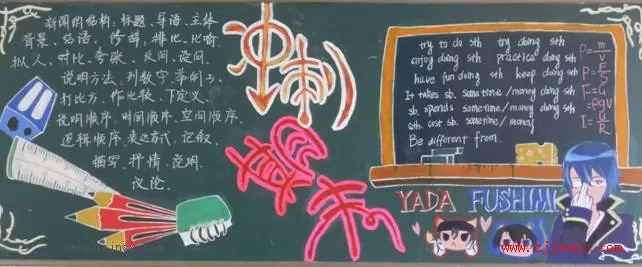 新闻的结构：标题、导语、主体
背景、结语．修辞：排比、比喻
拟人、对比、夸张、反问、设问．
说明方法：列数字、举例子、
打比方、作比较、下定义、
说明顺序、时间顺序、空间顺序、
逻辑顺序．表达方式、记叙、
描写、抒情、说明、
议论．
冲刺
try to do sth try doing sth
enjoy doing sth practice doing sth
have fun doing sth keep doing sth
It takes sb. some time/money doing sth
sb. spends sometime/money doing sth
sth. cost sb. sometime/money
Be different from
P=m/V
P=F/S
F=G
=ρgV
I=U/R
YADA FUSHIMI